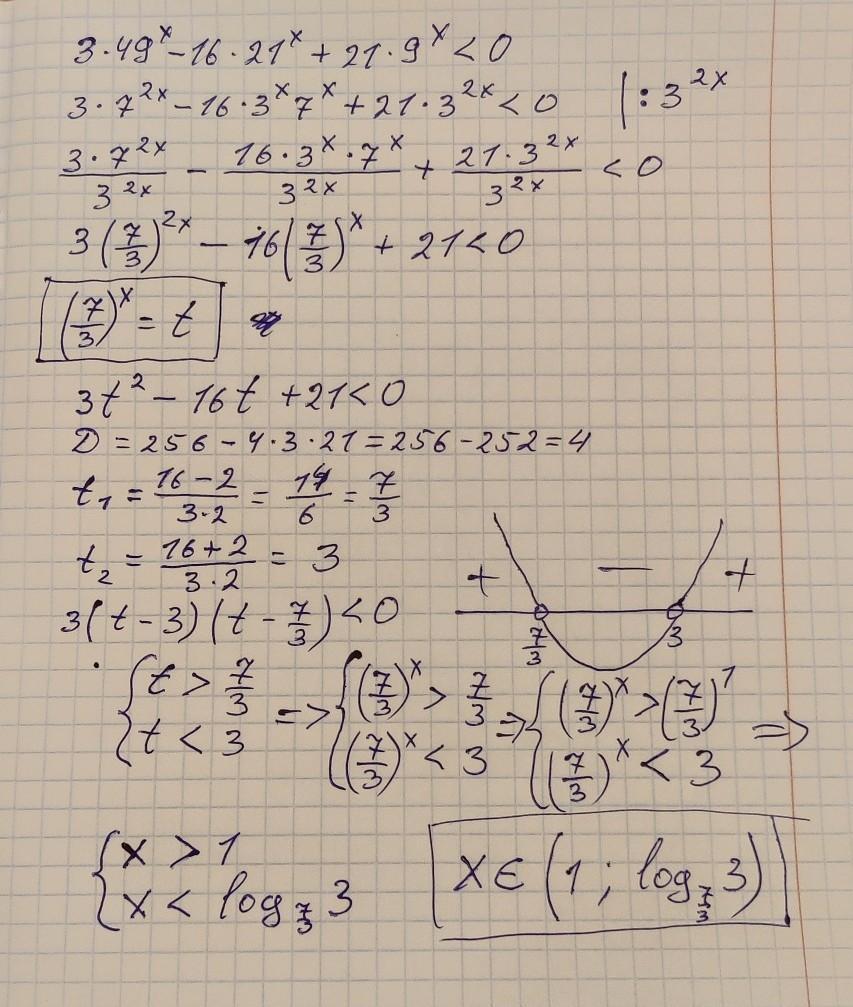 3·49^x − 16·21^x + 21·9^x < 0
3·7^{2x} − 16·3^x 7^x + 21·3^{2x} < 0 | : 3^{2x}
\frac{3·7^{2x}}{3^{2x}} − \frac{16·3^x·7^x}{3^{2x}} + \frac{21·3^{2x}}{3^{2x}} < 0
3(\frac{7}{3})^{2x} − 16(\frac{7}{3})^x + 21 < 0
(\frac{7}{3})^x = t
3t^2 − 16t + 21 < 0
D = 256 − 4·3·21 = 256 − 252 = 4
t_1 = \frac{16−2}{3·2} = \frac{14}{6} = \frac{7}{3}
t_2 = \frac{16+2}{3·2} = 3
+ − +
3(t−3)(t−\frac{7}{3}) < 0
\frac{7}{3} 3
{ t > \frac{7}{3} => { (\frac{7}{3})^x > \frac{7}{3} => { (\frac{7}{3})^x > (\frac{7}{3})^1 =>
t < 3 (\frac{7}{3})^x < 3 (\frac{7}{3})^x < 3
{ x > 1
x < log_{\frac{7}{3}} 3
x ∈ (1; log_{\frac{7}{3}} 3)